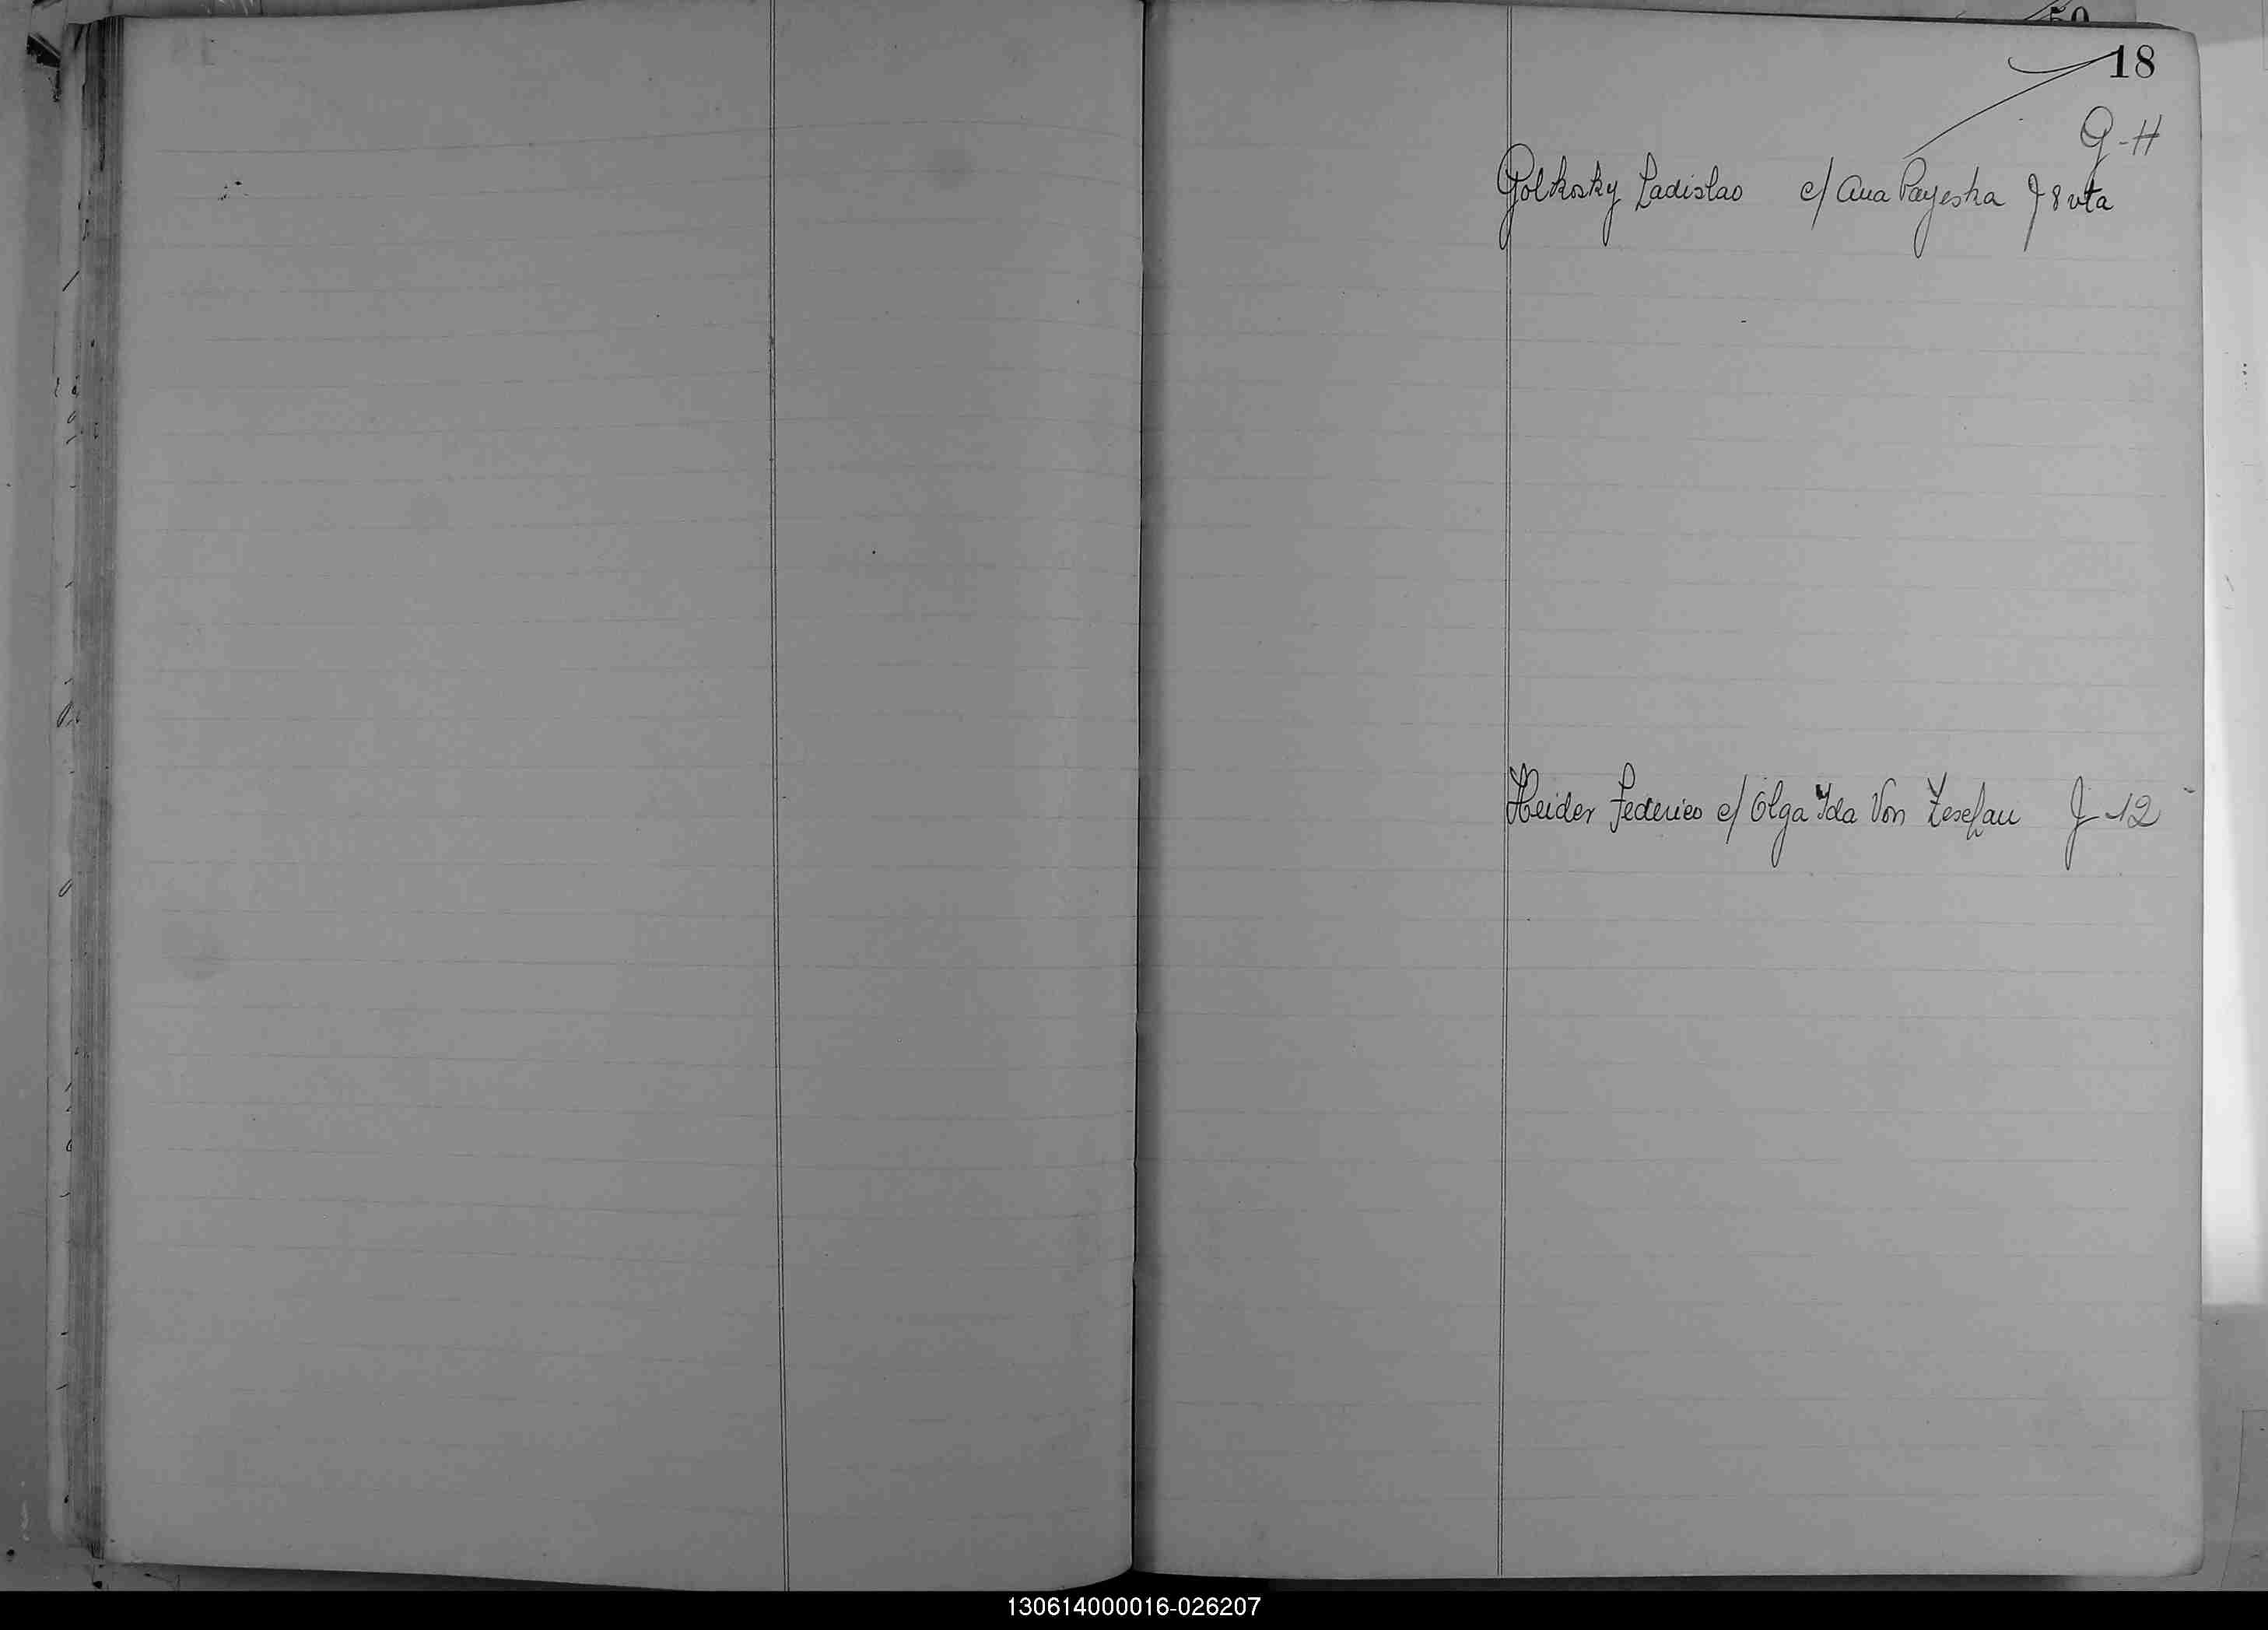 18
G-H
Golkosky Ladislao c/ Ana Payeska F 8 vta
Heider Federico c/ Olga Ida Von Zeschau F 12
130614000016-026207